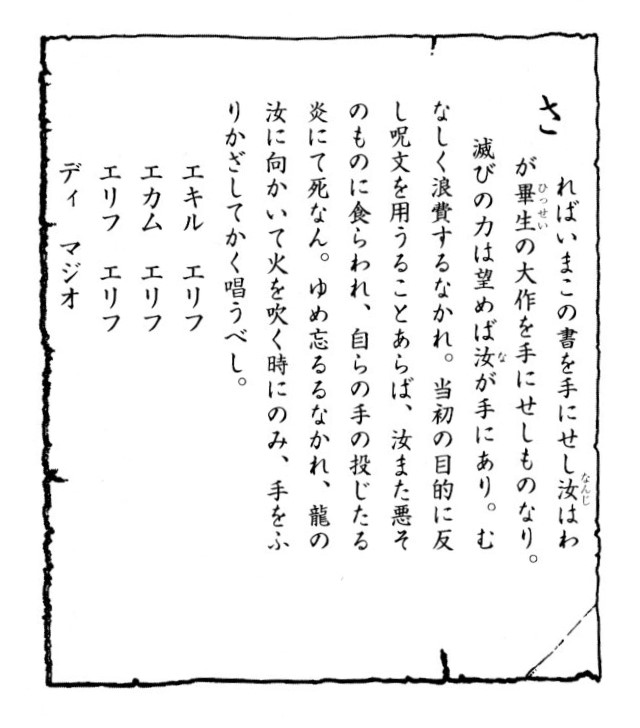 さればいまこの書を手にせし汝はわ
が畢生の大作を手にせしものなり。
滅びの力は望めば汝が手にあり。む
なしく浪費するなかれ。当初の目的に反
し呪文を用うることあらば、汝また悪そ
のものに食らわれ、自らの手の投じたる
炎にて死なん。ゆめ忘るるなかれ、龍の
汝に向かいて火を吹く時にのみ、手をふ
りかざしてかく唱うべし。
エキル　エリフ
エカム　エリフ
エリフ　エリフ
ディ　マジオ